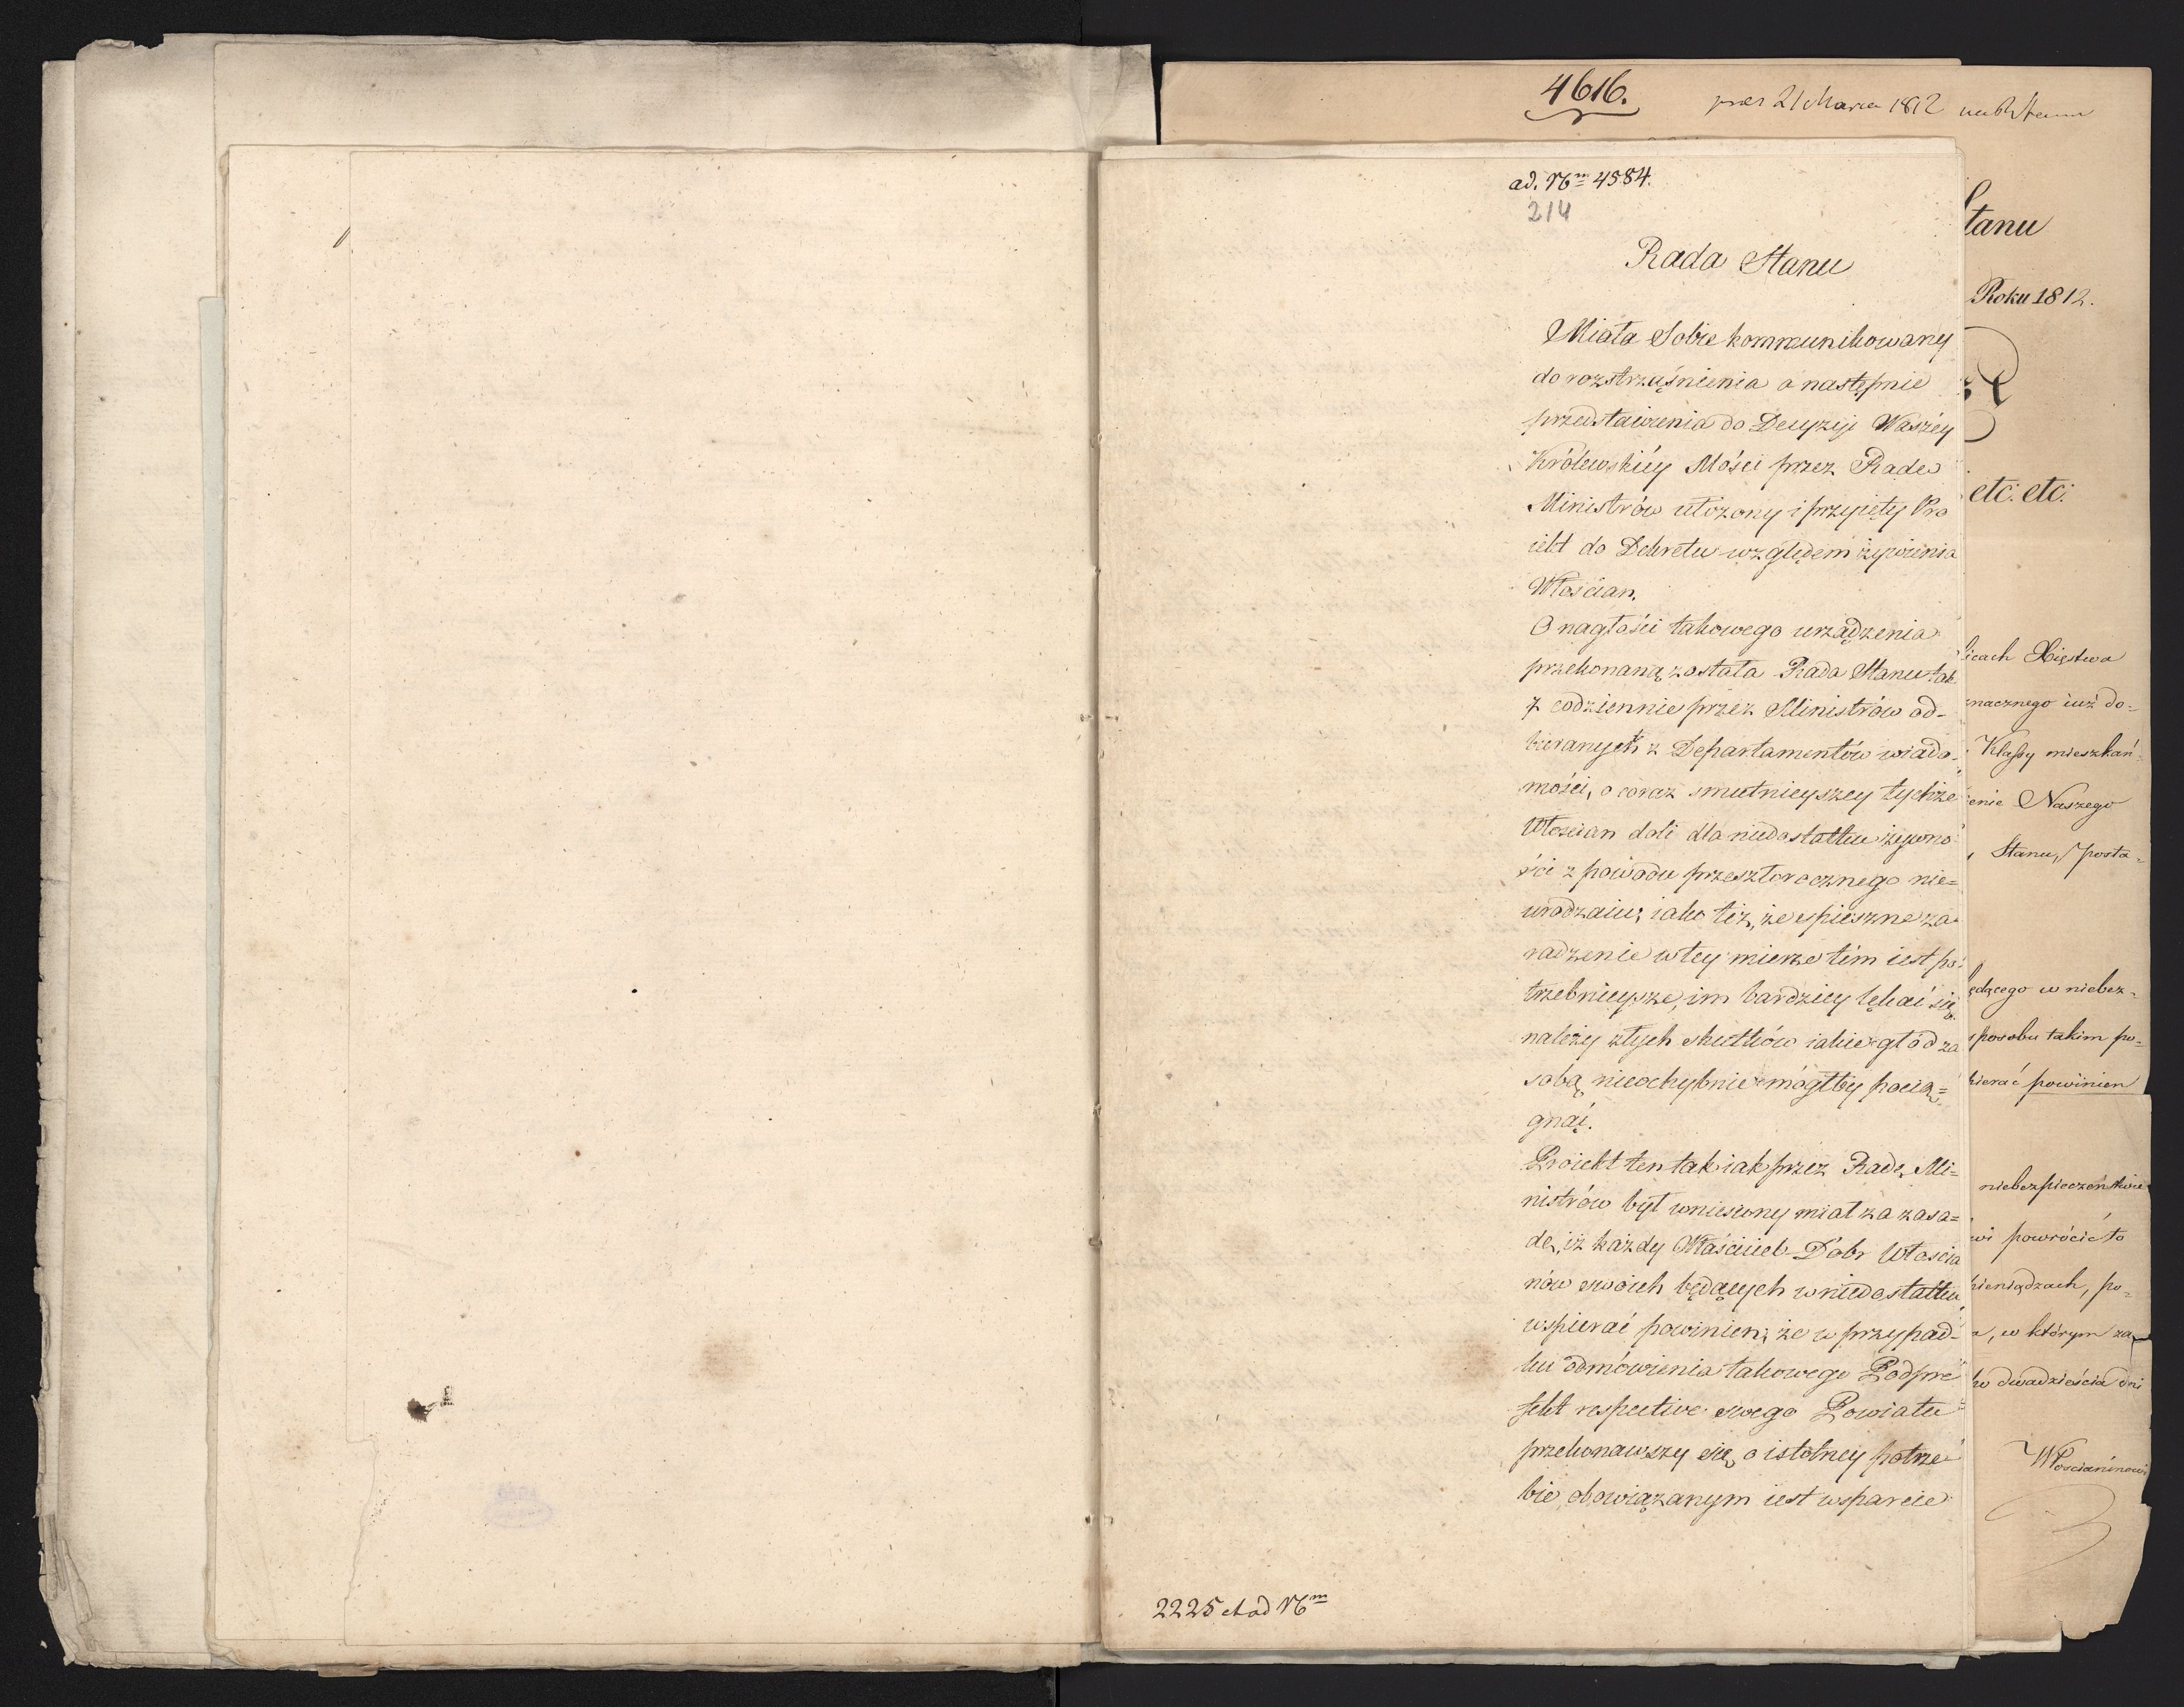 4616.
21 Marca 1812
ad. Nm 4584.
214
Rada Stanu
Miała Sobie kommunikowany
do rozstrząśnienia a następnie
przedstawienia do Decyzyi Waszéy
Królewskiéy Mości przez Radę
Ministrów ułożony i przyięty Pro
iekt do Dekretu względem żywienia
Włościan.
O nagłości takowego urządzenia
przekonaną została Rada Stanu tak
z codziennie przez Ministrów od-
bieranych z Departamentów wiado-
mości, o coraz smutnieyszey tychże
Włościan doli dla niedostatku żywno
ści z powodu przeszłorocznego nie=
urodzaiu; iako też, że spieszne za
radzenie w tey mierze tém iest po
trzebnieysze, im bardziey lękać się
należy złych skutków iakie głód za
sobą nieochybnie mógłby pocią=
gnąć.
Proiekt ten tak iak przez Radę Mi=
nistrów był wniesiony miał za zasa=
dę, iż każdy Właściciel Dóbr Włościa
nów swoich będących w niedostatku
wspierać powinien; że w przypad-
ku odmówienia takowego Podpre
fekt respective swego Powiatu
przekonawszy się o istotney potrze
bie obowiązanym iest wsparcie
2225 et ad Nm
tanu
Roku 1812.
etc: etc:
icach Xięstwa
znacznego iuż do=
Klassy mieszkań=
enie Naszego
Stanu, posta=
ędącego w niebez=
sposobu takim po=
bierać powinien
niebezpieczeństwie
wi powrócić to
pieniądzach, po=
, w którym za
ko dwadzieścia dni
Włościaninowi